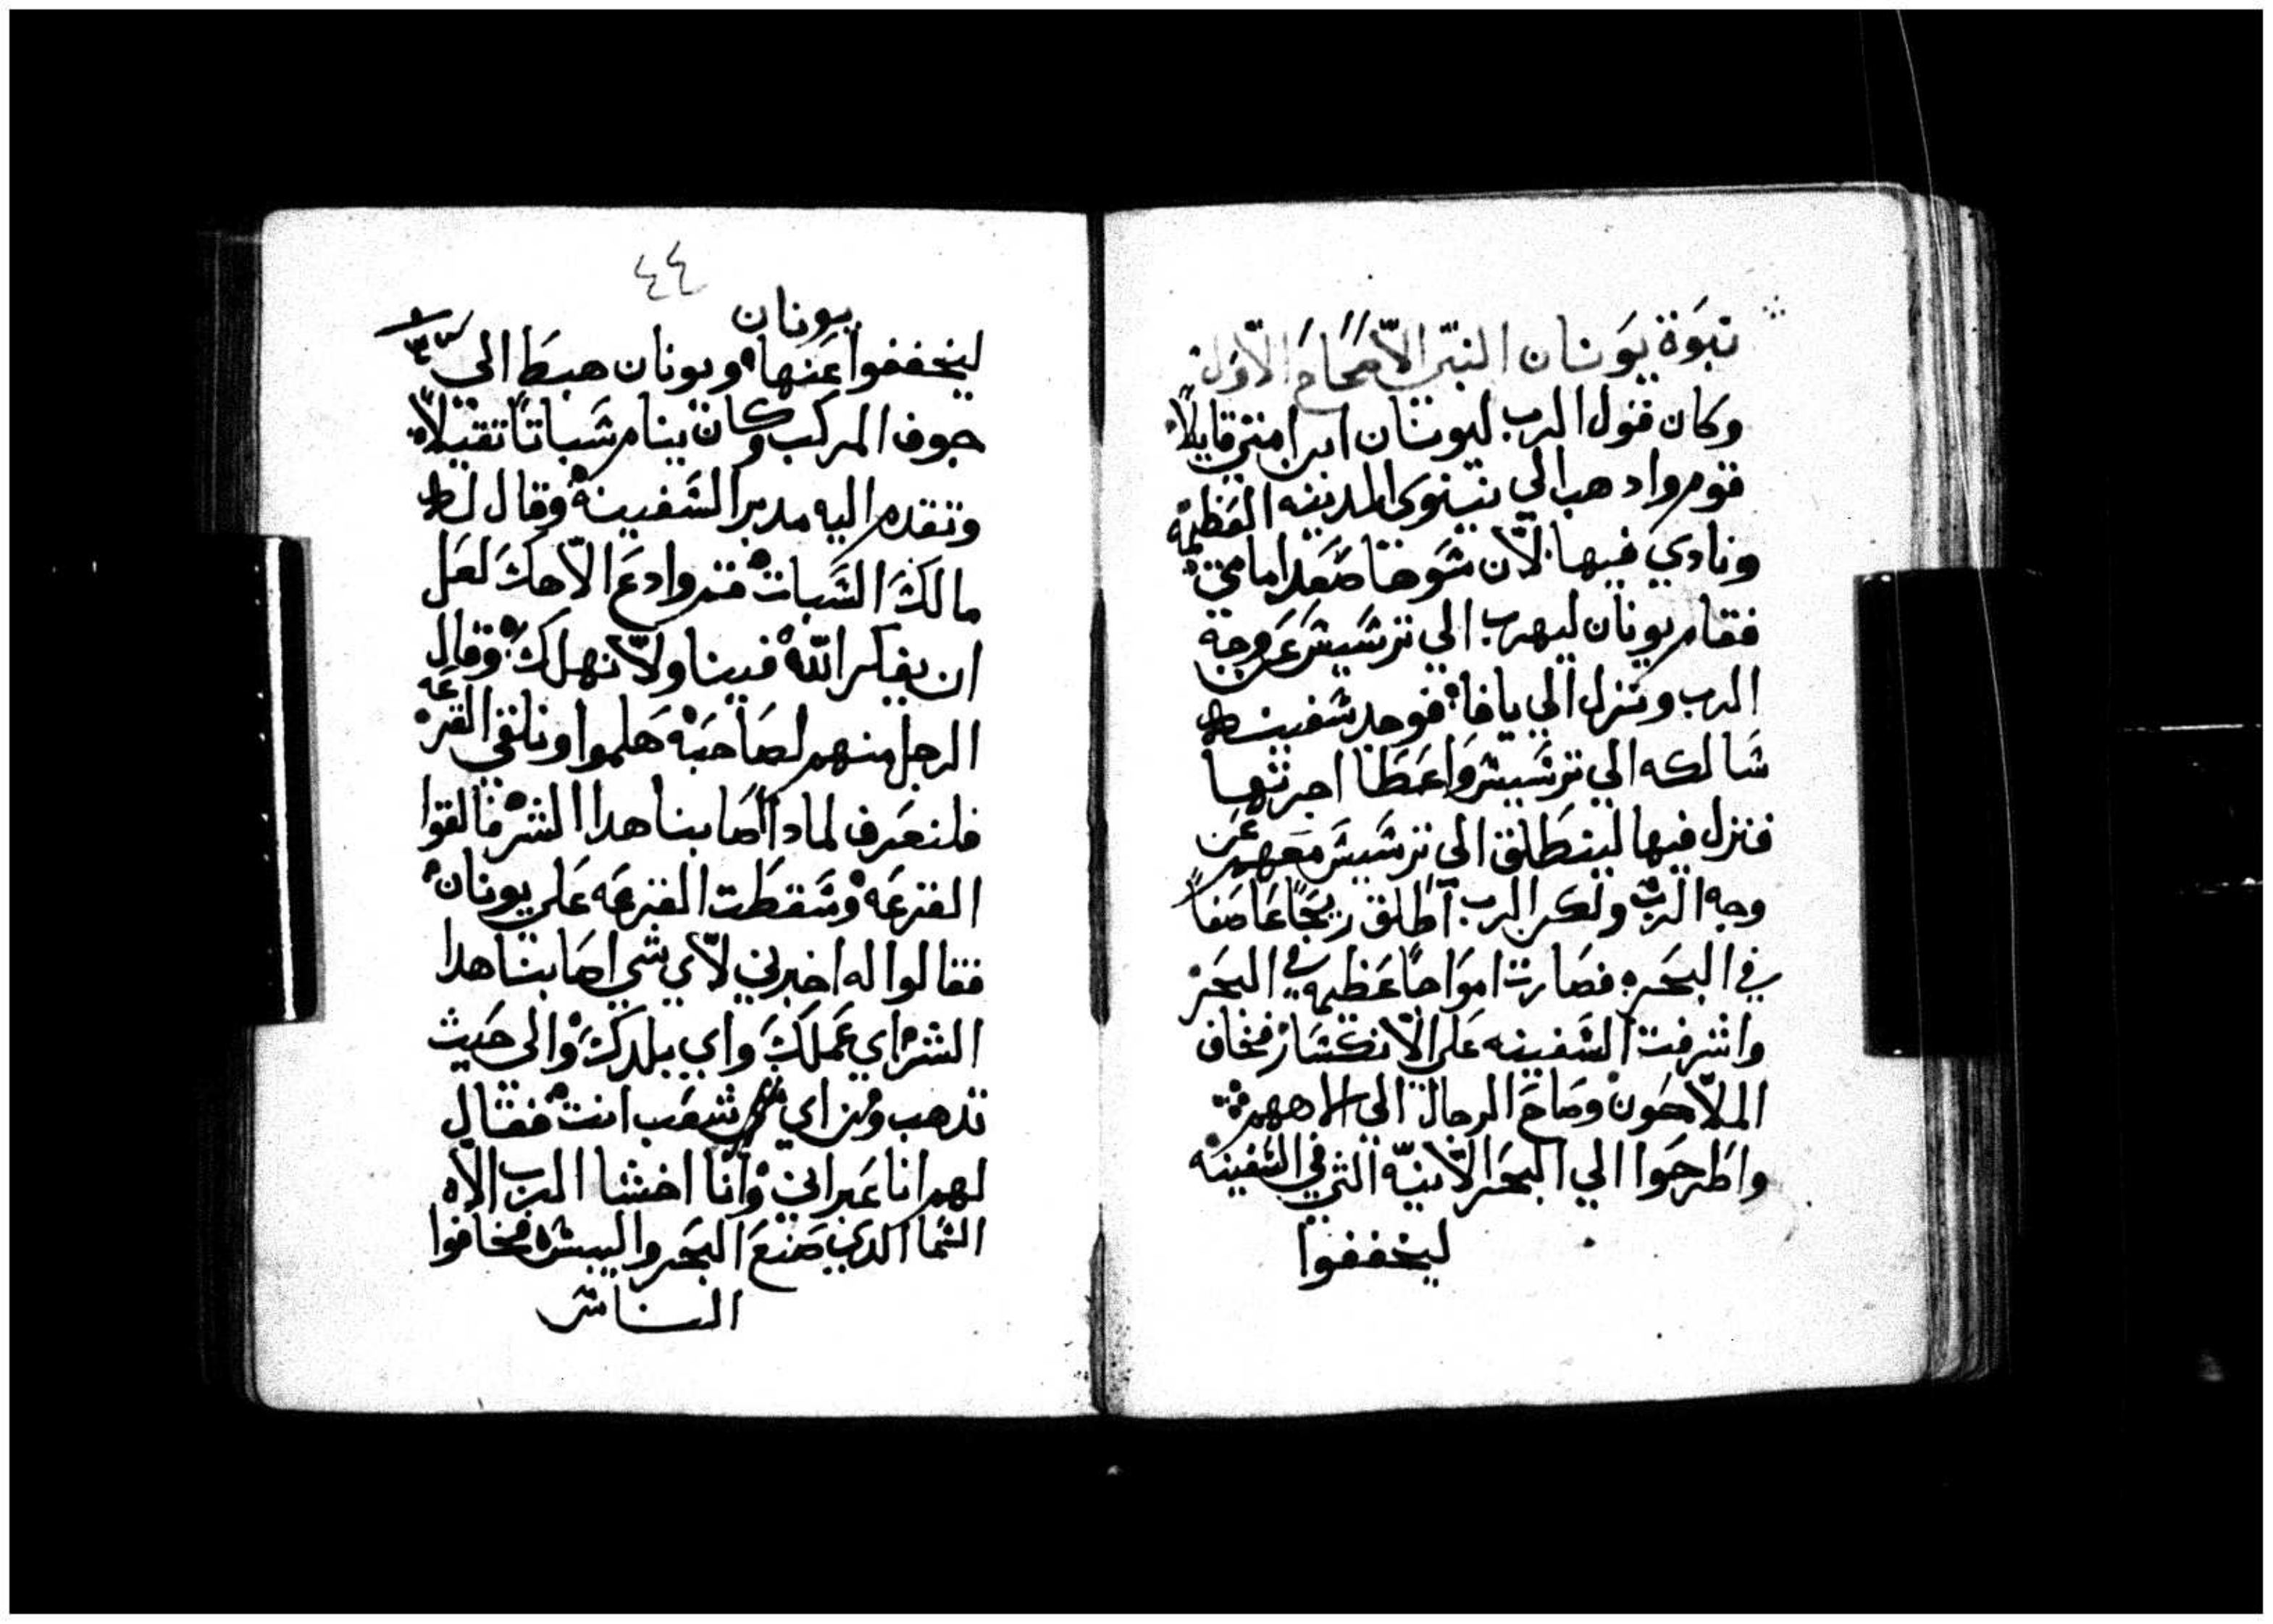 نبوة يونان النبي الأصحاح الأول
وكان قول الرب ليونان ابن امتي قايلاً
قوم وادهب الي نينوي المدينه العظيمه
ونادي فيها لأن شوها صعد امامي
فقام يونان ليهرب الي ترشيش عن وجة
الرب ونزل الي يافا فوجد شفينه
شالكه الي ترشيش واعطا اجرتها
فنزل فيها لينطلق الي ترشيش معهم عن
وجه الرب ولكن الرب أطلق ريحًا عاصفًا
في البحر فصارت امواجًا عظيمه في البحر
واشرفت الشفينه علي الأنكشار فخاف
الملّاحون وصاح الرجال الي الاههم
واطرحوا الي البحر الآنيّه التي في الشفينه
ليخففوا
٤٤
يونان
ليخففوا عنها ويونان هبط الي
جوف المركب وكان ينام شباتًا تقيلاً
وتقدم اليه مدبر الشفينة وقال له
مالك الشبات قم وادع الّاهك لعل
ان يفكر الله فينا ولّا نهلك وقال
الرجل منهم لصاحبه هلموا ونلقي القرعه
فلنعرف لمادا اصابنا هدا الشر فالقوا
القرعه وشقطت القرعه علي يونان
فقالوا له اخبرني لأي شي اصابنا هدا
الشر اي عملك واي بلدك والي حيث
تدهب ومن اي شعب انت فقال
لهم انا عبراني وانا اخشا الرب الاه
الشما الدي صنع البحر واليبش فخافوا
الناش